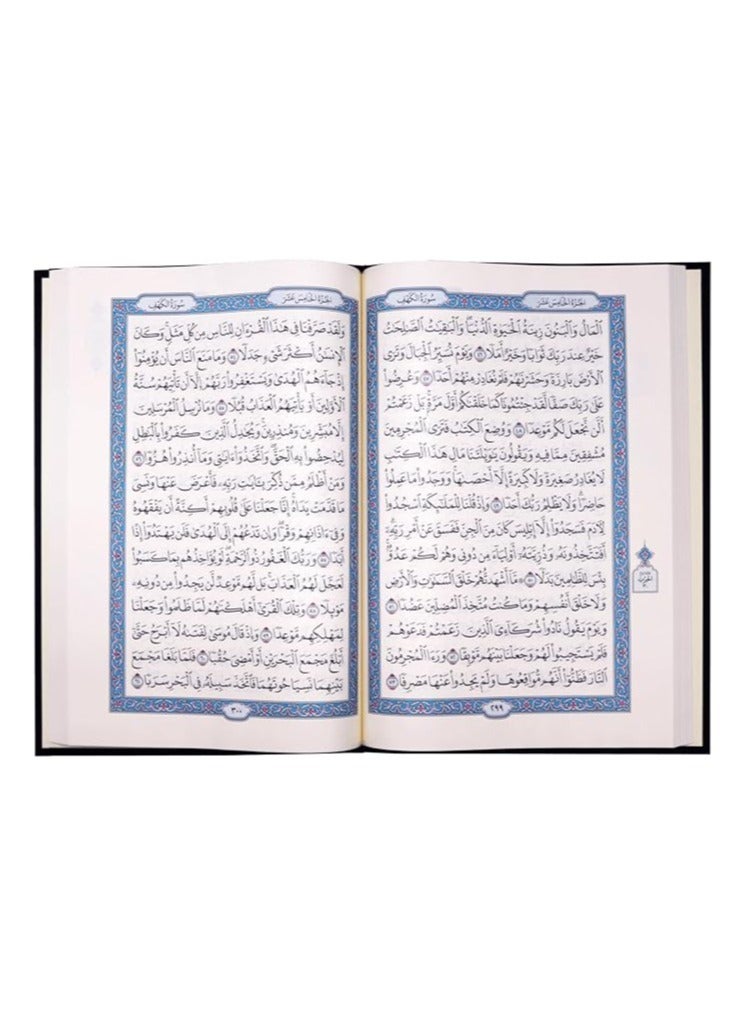 الجُزْءُ الخَامِسَ عَشَرَ
سُورَةُ الكَهْفِ
ٱلْمَالُ وَٱلْبَنُونَ زِينَةُ ٱلْحَيَوٰةِ ٱلدُّنْيَا ۖ وَٱلْبَٰقِيَٰتُ ٱلصَّٰلِحَٰتُ
خَيْرٌ عِندَ رَبِّكَ ثَوَابًا وَخَيْرٌ أَمَلًا ٤٦ وَيَوْمَ نُسَيِّرُ ٱلْجِبَالَ وَتَرَى
ٱلْأَرْضَ بَارِزَةً وَحَشَرْنَٰهُمْ فَلَمْ نُغَادِرْ مِنْهُمْ أَحَدًا ٤٧ وَعُرِضُوا۟
عَلَىٰ رَبِّكَ صَفًّا لَّقَدْ جِئْتُمُونَا كَمَا خَلَقْنَٰكُمْ أَوَّلَ مَرَّةٍۭ ۚ بَلْ زَعَمْتُمْ
أَلَّن نَّجْعَلَ لَكُم مَّوْعِدًا ٤٨ وَوُضِعَ ٱلْكِتَٰبُ فَتَرَى ٱلْمُجْرِمِينَ
مُشْفِقِينَ مِمَّا فِيهِ وَيَقُولُونَ يَٰوَيْلَتَنَا مَالِ هَٰذَا ٱلْكِتَٰبِ
لَا يُغَادِرُ صَغِيرَةً وَلَا كَبِيرَةً إِلَّآ أَحْصَىٰهَا ۚ وَوَجَدُوا۟ مَا عَمِلُوا۟
حَاضِرًا ۗ وَلَا يَظْلِمُ رَبُّكَ أَحَدًا ٤٩ وَإِذْ قُلْنَا لِلْمَلَٰٓئِكَةِ ٱسْجُدُوا۟
لِـَٔادَمَ فَسَجَدُوٓا۟ إِلَّآ إِبْلِيسَ كَانَ مِنَ ٱلْجِنِّ فَفَسَقَ عَنْ أَمْرِ رَبِّهِۦٓ ۗ
أَفَتَتَّخِذُونَهُۥ وَذُرِّيَّتَهُۥٓ أَوْلِيَآءَ مِن دُونِى وَهُمْ لَكُمْ عَدُوٌّۢ ۚ
بِئْسَ لِلظَّٰلِمِينَ بَدَلًا ٥٠ مَّآ أَشْهَدتُّهُمْ خَلْقَ ٱلسَّمَٰوَٰتِ وَٱلْأَرْضِ
وَلَا خَلْقَ أَنفُسِهِمْ وَمَا كُنتُ مُتَّخِذَ ٱلْمُضِلِّينَ عَضُدًا ٥١
وَيَوْمَ يَقُولُ نَادُوا۟ شُرَكَآءِىَ ٱلَّذِينَ زَعَمْتُمْ فَدَعَوْهُمْ
فَلَمْ يَسْتَجِيبُوا۟ لَهُمْ وَجَعَلْنَا بَيْنَهُم مَّوْبِقًا ٥٢ وَرَءَا ٱلْمُجْرِمُونَ
ٱلنَّارَ فَظَنُّوٓا۟ أَنَّهُم مُّوَاقِعُوهَا وَلَمْ يَجِدُوا۟ عَنْهَا مَصْرِفًا ٥٣
٢٩٩
الجُزْءُ الخَامِسَ عَشَرَ
سُورَةُ الكَهْفِ
وَلَقَدْ صَرَّفْنَا فِى هَٰذَا ٱلْقُرْءَانِ لِلنَّاسِ مِن كُلِّ مَثَلٍ ۚ وَكَانَ
ٱلْإِنسَٰنُ أَكْثَرَ شَىْءٍ جَدَلًا ٥٤ وَمَا مَنَعَ ٱلنَّاسَ أَن يُؤْمِنُوٓا۟
إِذْ جَآءَهُمُ ٱلْهُدَىٰ وَيَسْتَغْفِرُوا۟ رَبَّهُمْ إِلَّآ أَن تَأْتِيَهُمْ سُنَّةُ
ٱلْأَوَّلِينَ أَوْ يَأْتِيَهُمُ ٱلْعَذَابُ قُبُلًا ٥٥ وَمَا نُرْسِلُ ٱلْمُرْسَلِينَ
إِلَّا مُبَشِّرِينَ وَمُنذِرِينَ ۚ وَيُجَٰدِلُ ٱلَّذِينَ كَفَرُوا۟ بِٱلْبَٰطِلِ
لِيُدْحِضُوا۟ بِهِ ٱلْحَقَّ ۖ وَٱتَّخَذُوٓا۟ ءَايَٰتِى وَمَآ أُنذِرُوا۟ هُزُوًا ٥٦
وَمَنْ أَظْلَمُ مِمَّن ذُكِّرَ بِـَٔايَٰتِ رَبِّهِۦ فَأَعْرَضَ عَنْهَا وَنَسِىَ
مَا قَدَّمَتْ يَدَاهُ ۚ إِنَّا جَعَلْنَا عَلَىٰ قُلُوبِهِمْ أَكِنَّةً أَن يَفْقَهُوهُ
وَفِىٓ ءَاذَانِهِمْ وَقْرًا ۖ وَإِن تَدْعُهُمْ إِلَى ٱلْهُدَىٰ فَلَن يَهْتَدُوٓا۟ إِذًا
أَبَدًا ٥٧ وَرَبُّكَ ٱلْغَفُورُ ذُو ٱلرَّحْمَةِ ۖ لَوْ يُؤَاخِذُهُم بِمَا كَسَبُوا۟
لَعَجَّلَ لَهُمُ ٱلْعَذَابَ ۚ بَل لَّهُم مَّوْعِدٌ لَّن يَجِدُوا۟ مِن دُونِهِۦ
مَوْئِلًا ٥٨ وَتِلْكَ ٱلْقُرَىٰٓ أَهْلَكْنَٰهُمْ لَمَّا ظَلَمُوا۟ وَجَعَلْنَا
لِمَهْلِكِهِم مَّوْعِدًا ٥٩ وَإِذْ قَالَ مُوسَىٰ لِفَتَىٰهُ لَآ أَبْرَحُ حَتَّىٰٓ
أَبْلُغَ مَجْمَعَ ٱلْبَحْرَيْنِ أَوْ أَمْضِىَ حُقُبًا ٦٠ فَلَمَّا بَلَغَا مَجْمَعَ
بَيْنِهِمَا نَسِيَا حُوتَهُمَا فَٱتَّخَذَ سَبِيلَهُۥ فِى ٱلْبَحْرِ سَرَبًا ٦١
٣٠٠